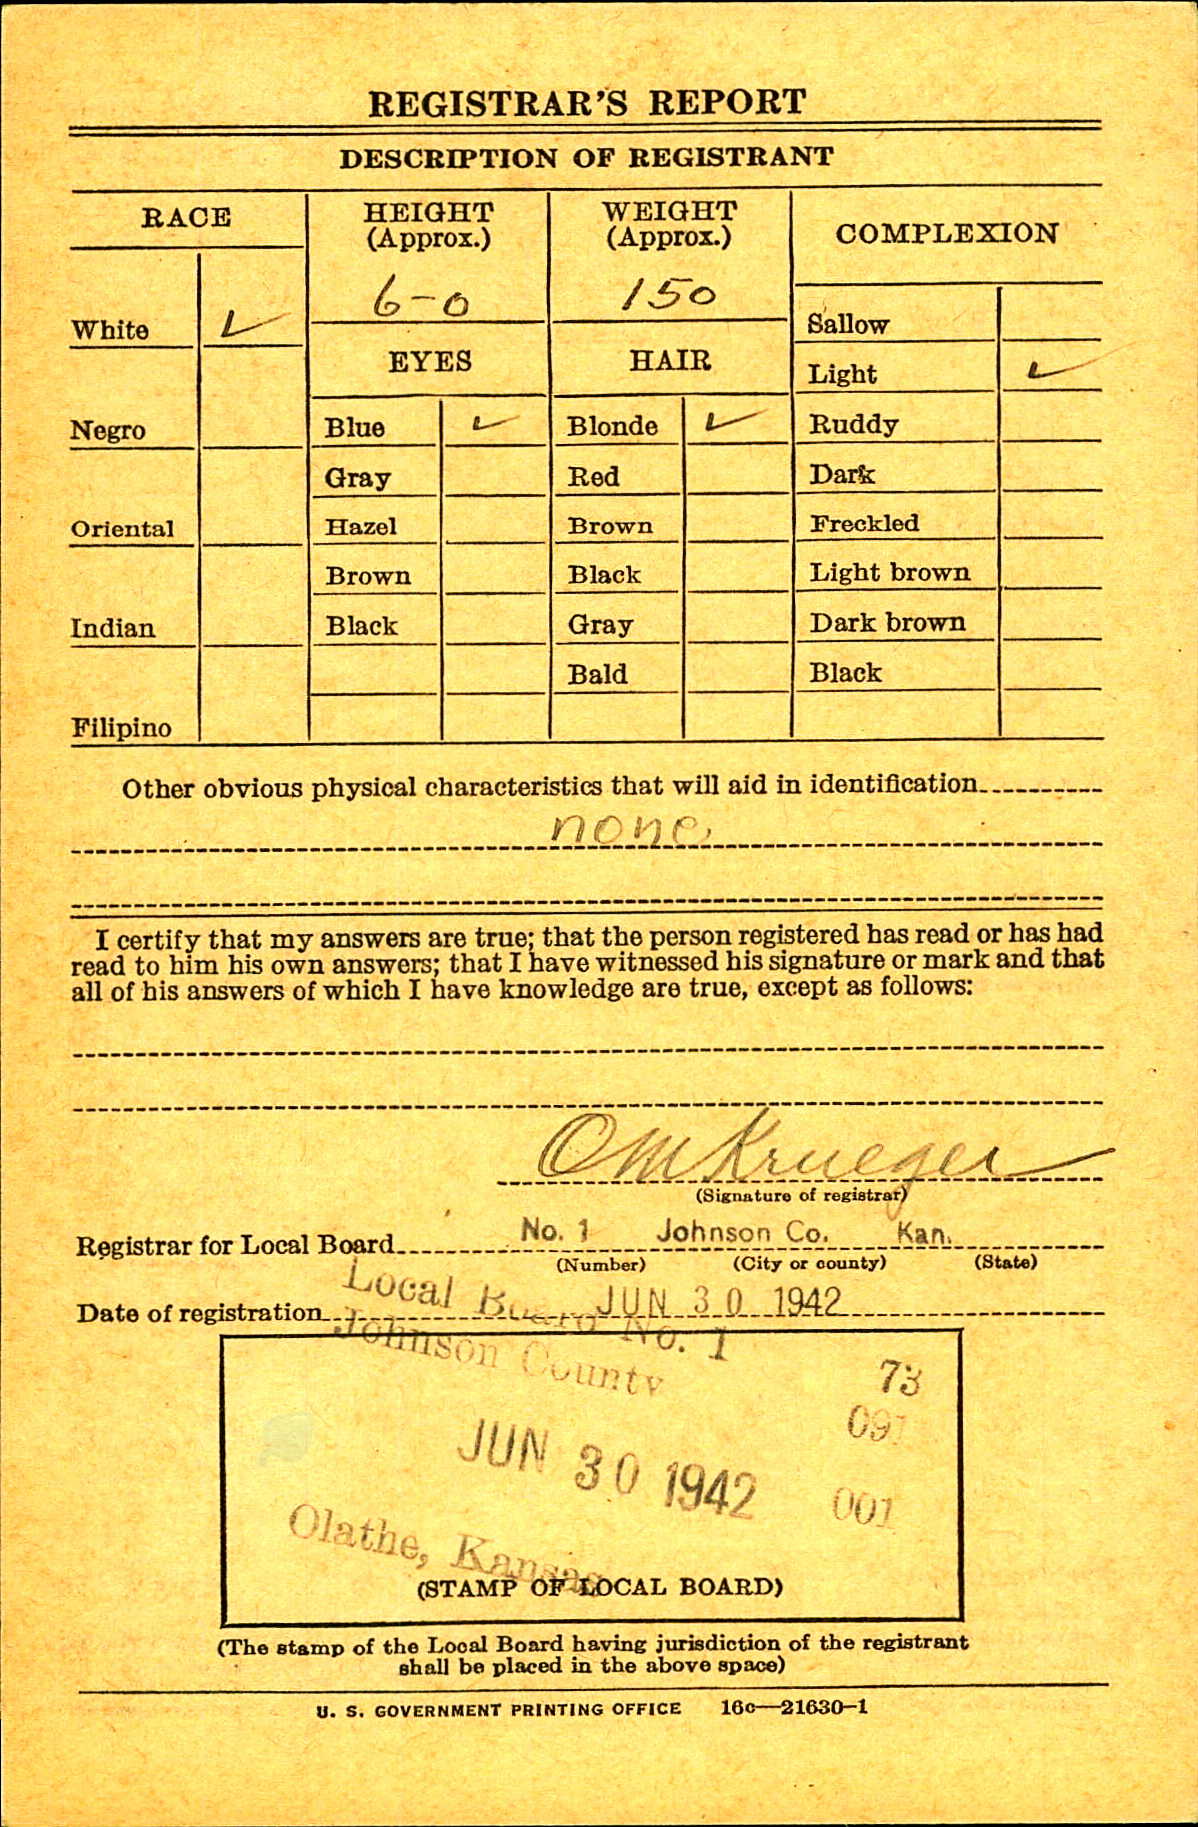 REGISTRAR'S REPORT
DESCRIPTION OF REGISTRANT
RACE
HEIGHT
(Approx.)
WEIGHT
(Approx.)
COMPLEXION
6-0
150
White ✓
Sallow
EYES
HAIR
Light ✓
Negro
Blue ✓
Blonde ✓
Ruddy
Gray
Red
Dark
Oriental
Hazel
Brown
Freckled
Brown
Black
Light brown
Indian
Black
Gray
Dark brown
Bald
Black
Filipino
Other obvious physical characteristics that will aid in identification
none
I certify that my answers are true; that the person registered has read or has had
read to him his own answers; that I have witnessed his signature or mark and that
all of his answers of which I have knowledge are true, except as follows:
OM Krueger
(Signature of registrar)
Registrar for Local Board No. 1 Johnson Co. Kan.
(Number) (City or county) (State)
Date of registration JUN 30 1942
Local Board No. 1
Johnson County
73
091
JUN 30 1942
001
Olathe, Kansas
(STAMP OF LOCAL BOARD)
(The stamp of the Local Board having jurisdiction of the registrant
shall be placed in the above space)
U. S. GOVERNMENT PRINTING OFFICE 16c—21630-1